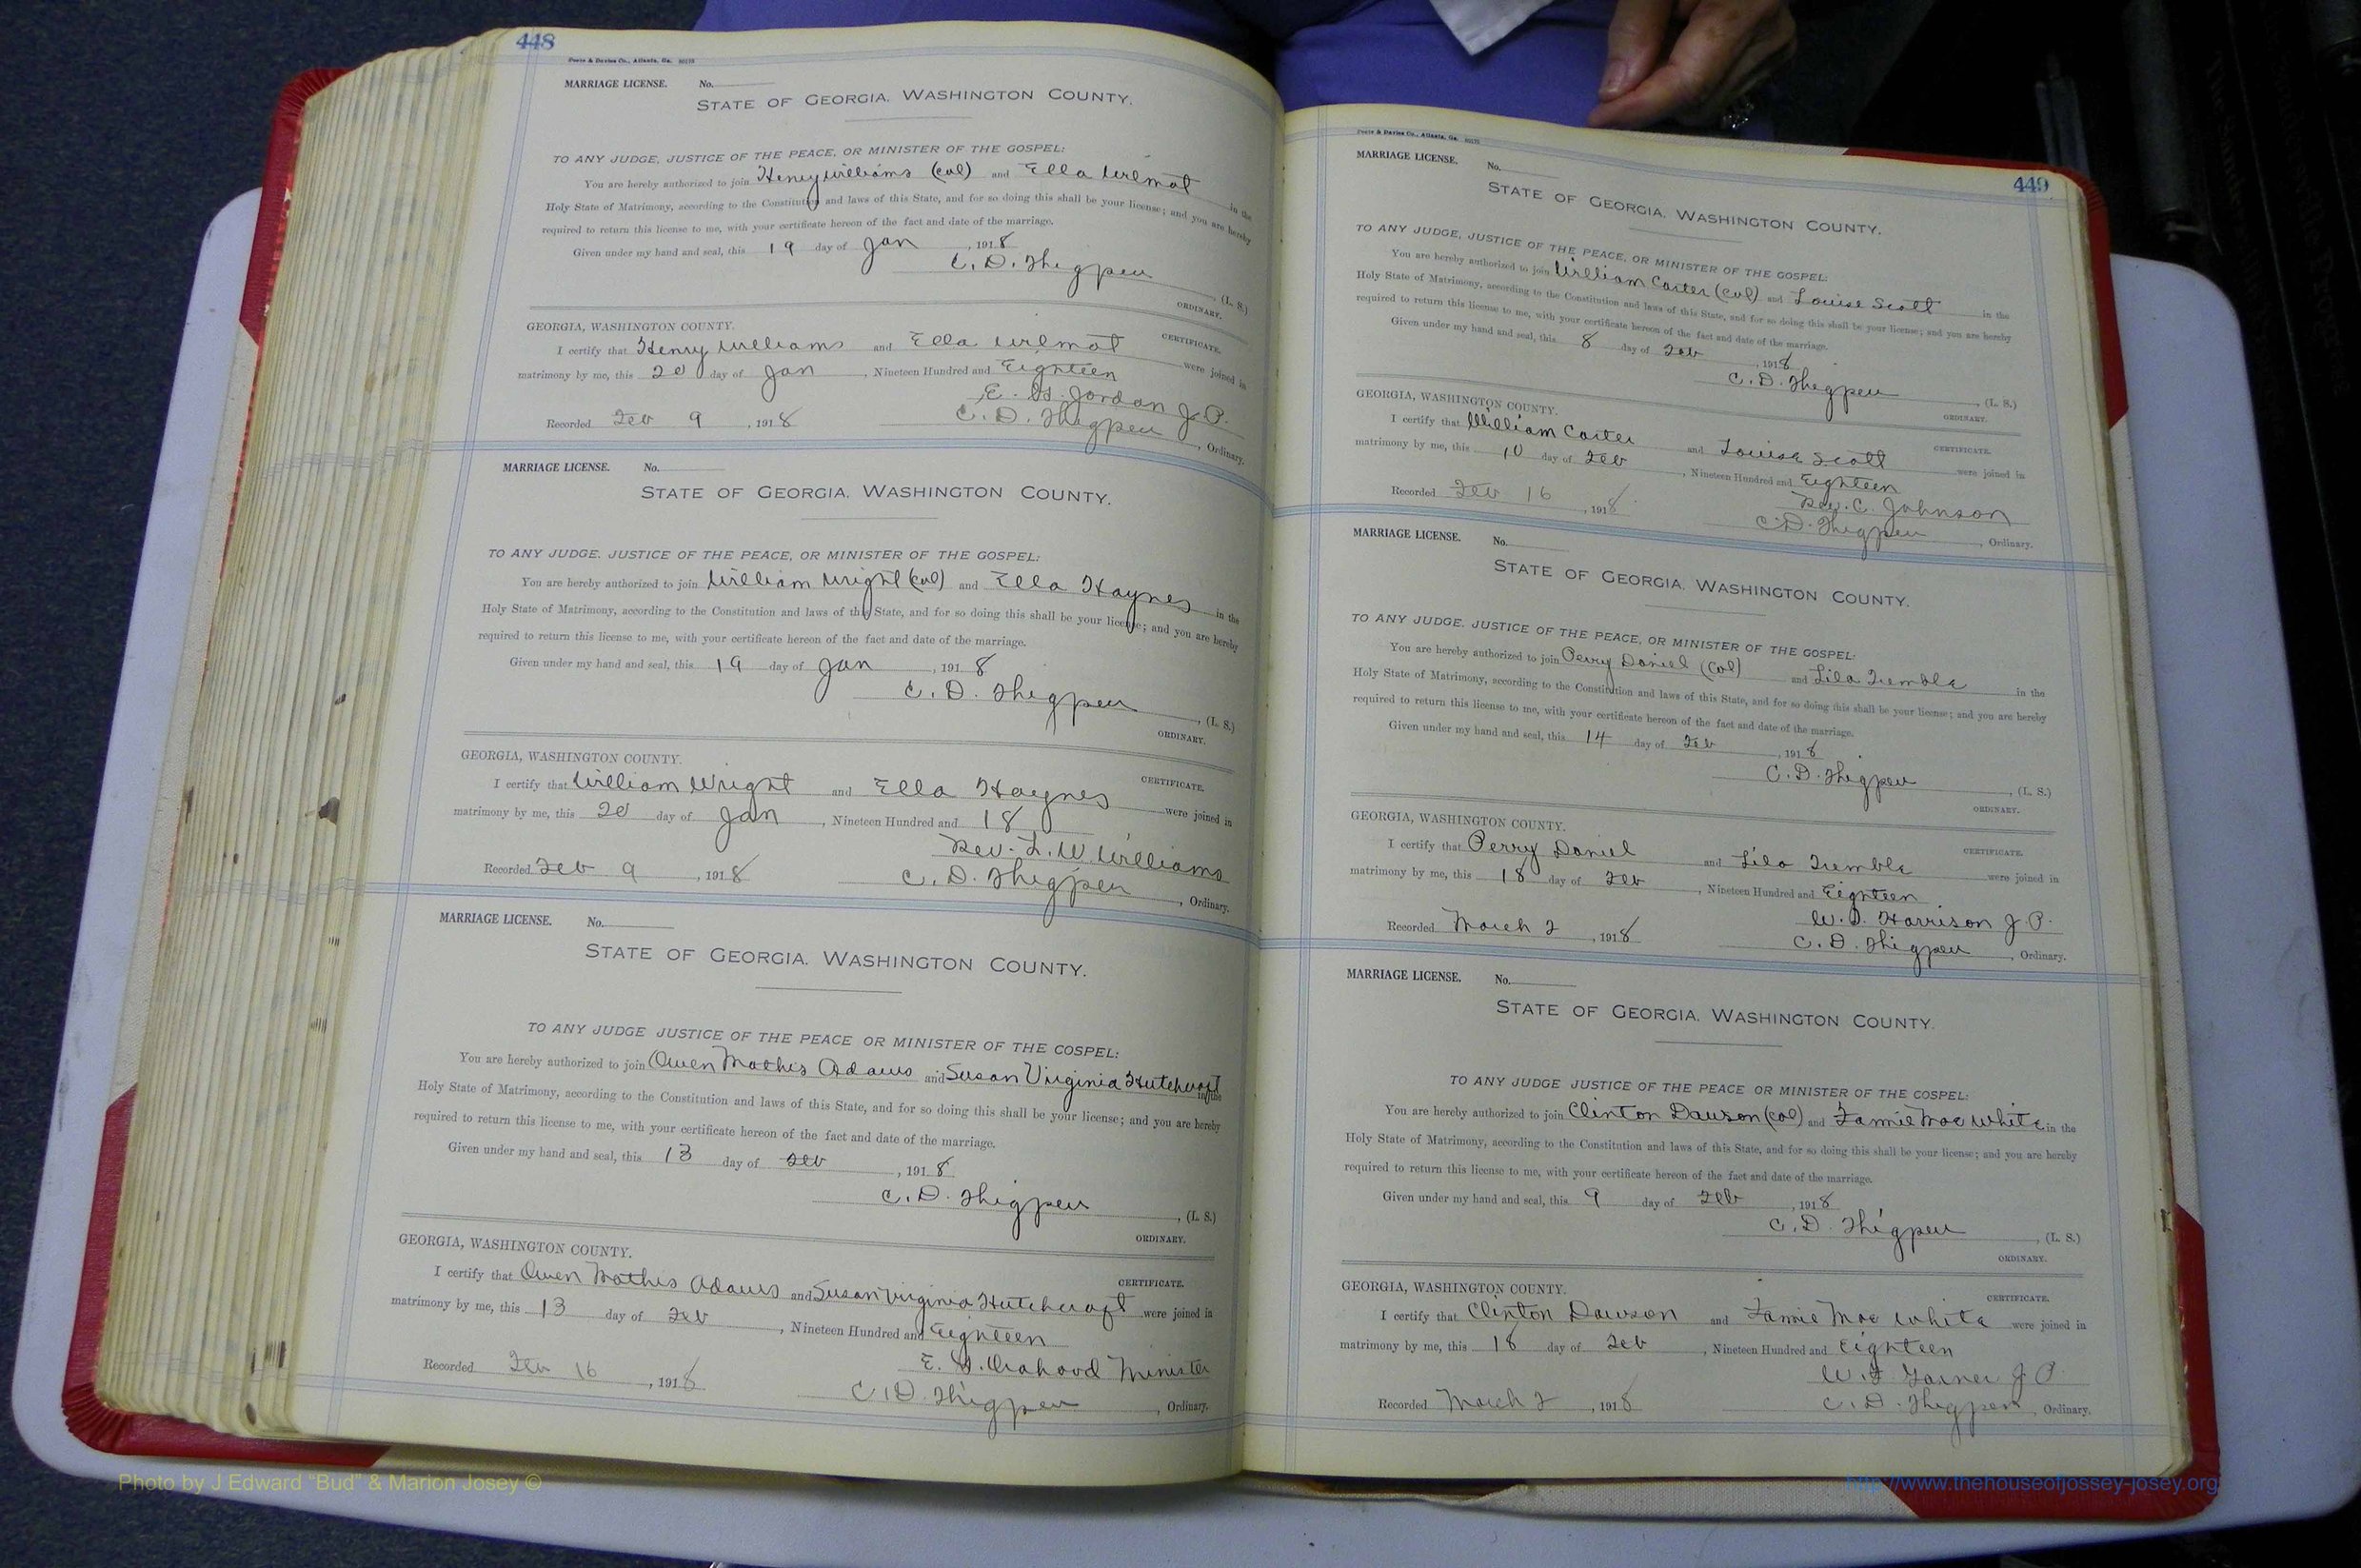 448
Foote & Davies Co., Atlanta, Ga.
MARRIAGE LICENSE. No.
STATE OF GEORGIA. WASHINGTON COUNTY.
TO ANY JUDGE, JUSTICE OF THE PEACE, OR MINISTER OF THE GOSPEL:
You are hereby authorized to join Henry Williams (col) and Ella Wilmot in the
Holy State of Matrimony, according to the Constitution and laws of this State, and for so doing this shall be your license; and you are hereby
required to return this license to me, with your certificate hereon of the fact and date of the marriage.
Given under my hand and seal, this 19 day of Jan, 1918
C. D. Thigpen, (L. S.)
ORDINARY.
GEORGIA, WASHINGTON COUNTY.
CERTIFICATE.
I certify that Henry Williams and Ella Wilmot were joined in
matrimony by me, this 20 day of Jan, Nineteen Hundred and Eighteen
E. Jordan J. P.
Recorded Feb 9, 1918 C. D. Thigpen, Ordinary.
MARRIAGE LICENSE. No.
STATE OF GEORGIA. WASHINGTON COUNTY.
TO ANY JUDGE. JUSTICE OF THE PEACE, OR MINISTER OF THE GOSPEL:
You are hereby authorized to join William Wright (col) and Ella Haynes in the
Holy State of Matrimony, according to the Constitution and laws of this State, and for so doing this shall be your license; and you are hereby
required to return this license to me, with your certificate hereon of the fact and date of the marriage.
Given under my hand and seal, this 19 day of Jan, 1918
C. D. Thigpen, (L. S.)
ORDINARY.
GEORGIA, WASHINGTON COUNTY.
CERTIFICATE.
I certify that William Wright and Ella Haynes were joined in
matrimony by me, this 20 day of Jan, Nineteen Hundred and 18
Rev. L. W. Williams
Recorded Feb 9, 1918 C. D. Thigpen, Ordinary.
MARRIAGE LICENSE. No.
STATE OF GEORGIA. WASHINGTON COUNTY.
TO ANY JUDGE JUSTICE OF THE PEACE OR MINISTER OF THE GOSPEL:
You are hereby authorized to join Owen Mathis Adams and Susan Virginia Hutchcraft in the
Holy State of Matrimony, according to the Constitution and laws of this State, and for so doing this shall be your license; and you are hereby
required to return this license to me, with your certificate hereon of the fact and date of the marriage.
Given under my hand and seal, this 13 day of Feb, 1918
C. D. Thigpen, (L. S.)
ORDINARY.
GEORGIA, WASHINGTON COUNTY.
CERTIFICATE.
I certify that Owen Mathis Adams and Susan Virginia Hutchcraft were joined in
matrimony by me, this 13 day of Feb, Nineteen Hundred and Eighteen
E. Minister
Recorded Feb 16, 1918 C. D. Thigpen, Ordinary.
449
Foote & Davies Co., Atlanta, Ga.
MARRIAGE LICENSE. No.
STATE OF GEORGIA. WASHINGTON COUNTY.
TO ANY JUDGE, JUSTICE OF THE PEACE, OR MINISTER OF THE GOSPEL:
You are hereby authorized to join William Carter (col) and Louise Scott in the
Holy State of Matrimony, according to the Constitution and laws of this State, and for so doing this shall be your license; and you are hereby
required to return this license to me, with your certificate hereon of the fact and date of the marriage.
Given under my hand and seal, this 8 day of Feb, 1918
C. D. Thigpen, (L. S.)
ORDINARY.
GEORGIA, WASHINGTON COUNTY.
CERTIFICATE.
I certify that William Carter and Louise Scott were joined in
matrimony by me, this 10 day of Feb, Nineteen Hundred and Eighteen
Rev. C. Johnson
Recorded Feb 16, 1918 C. D. Thigpen, Ordinary.
MARRIAGE LICENSE. No.
STATE OF GEORGIA. WASHINGTON COUNTY.
TO ANY JUDGE. JUSTICE OF THE PEACE, OR MINISTER OF THE GOSPEL:
You are hereby authorized to join Perry Daniel (col) and Lila Trimble in the
Holy State of Matrimony, according to the Constitution and laws of this State, and for so doing this shall be your license; and you are hereby
required to return this license to me, with your certificate hereon of the fact and date of the marriage.
Given under my hand and seal, this 14 day of Feb, 1918
C. D. Thigpen, (L. S.)
ORDINARY.
GEORGIA, WASHINGTON COUNTY.
CERTIFICATE.
I certify that Perry Daniel and Lila Trimble were joined in
matrimony by me, this 18 day of Feb, Nineteen Hundred and Eighteen
W. D. Harrison J. P.
Recorded March 2, 1918 C. D. Thigpen, Ordinary.
MARRIAGE LICENSE. No.
STATE OF GEORGIA. WASHINGTON COUNTY.
TO ANY JUDGE JUSTICE OF THE PEACE OR MINISTER OF THE GOSPEL:
You are hereby authorized to join Clinton Dawson (col) and Fannie Mae White in the
Holy State of Matrimony, according to the Constitution and laws of this State, and for so doing this shall be your license; and you are hereby
required to return this license to me, with your certificate hereon of the fact and date of the marriage.
Given under my hand and seal, this 9 day of Feb, 1918
C. D. Thigpen, (L. S.)
ORDINARY.
GEORGIA, WASHINGTON COUNTY.
CERTIFICATE.
I certify that Clinton Dawson and Fannie Mae White were joined in
matrimony by me, this 18 day of Feb, Nineteen Hundred and Eighteen
W. F. J. P.
Recorded March 2, 1918 C. D. Thigpen, Ordinary.
Photo by J Edward "Bud" & Marion Josey ©
http://www.thehouseofjossey-josey.org